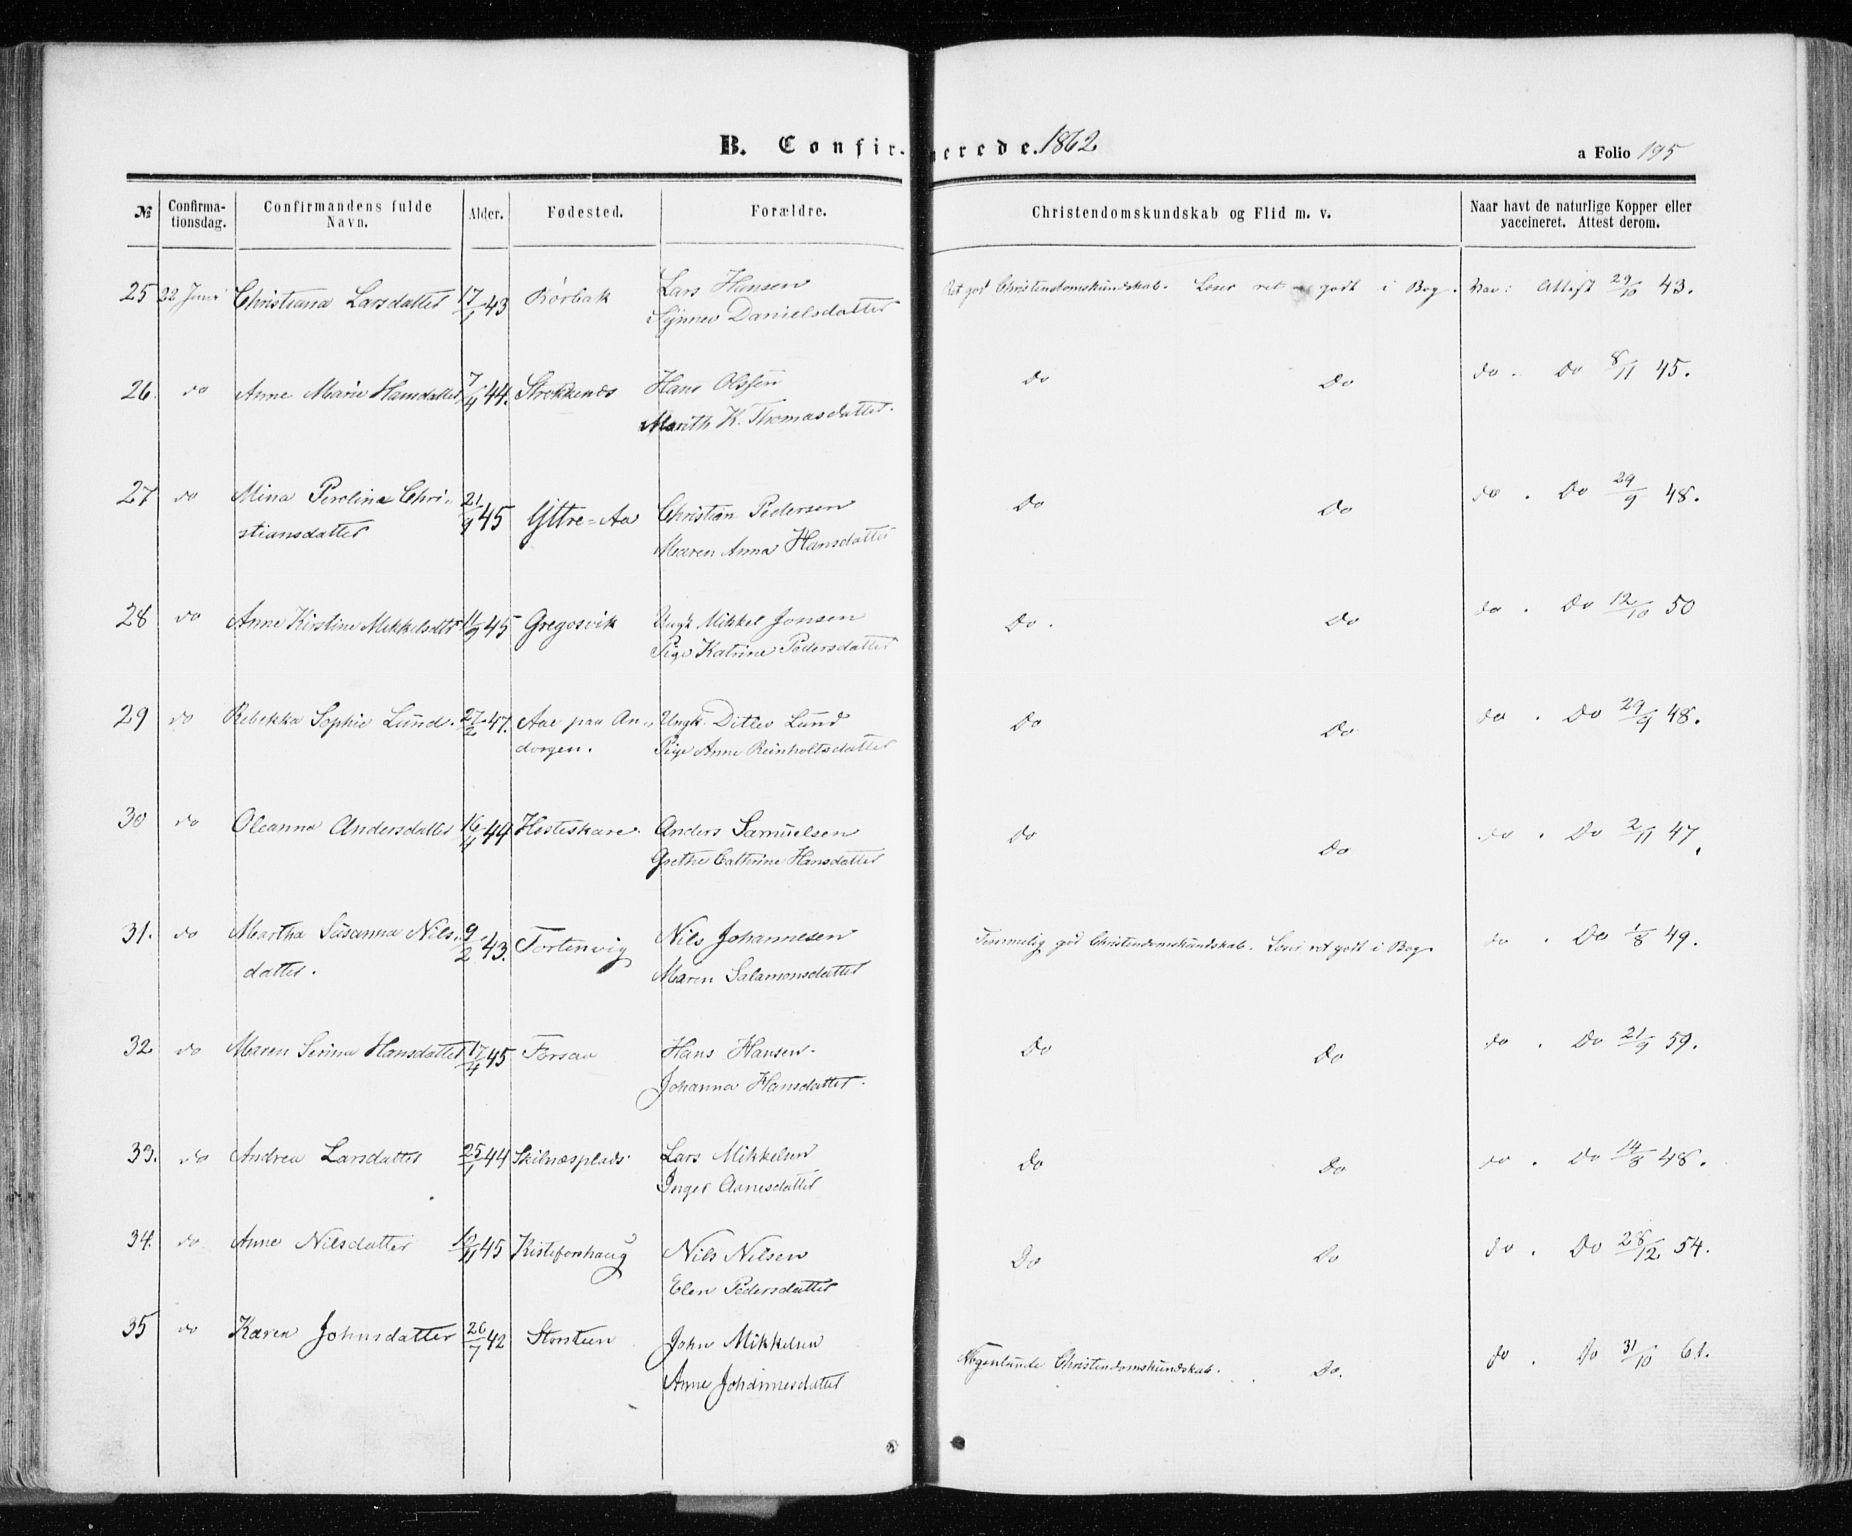 B. Confirmerede. 1862
a Folio 195
№ Confirmationsdag. Confirmandens fulde Navn. Alder. Fødested. Forældre. Christendomskundskab og Flid m. v. Naar havt de naturlige Kopper eller vaccineret. Attest derom.
25 22 Juni Christiana Larsdatter 17/1 43 Rørbak Lars Hansen Ret god Christendomskundskab. Læser ret godt i Bog. Vac: Attest 29/10 43.
Synnev Danielsdatter
26 do Anne Marie Hansdatter 7/4 44. Strokkenæs Hans Olssen Do Do do. Do 8/11 45.
Marith K. Thomasdatter.
27 do Mina Perolina Chri- 21/9 45 Yttre=Aa Christian Pedersen Do Do do. Do 29/9 48.
stiansdatter Maren Anna Hansdatter
28 do Anne Kirstine Mikkelsdtr 11/9 45 Gregosvik Ungk Mikkel Jonsen Do. Do do. Do 12/10 50
Pige Katrine Pedersdatter
29 do Rebekka Sophie Lund. 27/2 47. Aae paa An- Ungk. Ditlev Lund Do Do do. Do 29/9 48.
dorgen. Pige Anne Reinholtsdatter
30 do Oleanna Andersdatter 16/4 44 Hesteskare. Anders Samuelsen Do Do do. Do 2/11 47.
Grethe Cathrine Hansdatter
31. do Martha Susanna Nils- 9/2 43. Tortenvig Nils Johannesen Temmelig god Christendomskundskab. Læser ret godt i Bog. do. Do 1/8 49.
datter. Maren Salamonsdatter
32. do Maren Serina Hansdatter 17/4 45 Forsaa Hans Hansen. Do Do do. Do 21/9 59.
Johanna Hansdatter.
33. do Andrea Larsdatter 25/1 44 Skilnæsplads Lars Mikkelsen Do Do do. Do 14/8 48.
Inger Arnesdatter
34. do Anne Nilsdatter 10/11 45 Kristiforshaug Nils Nilsen Do Do do. Do 28/12 54.
Elen Pedersdatter
35 do Karen Johnsdatter 26/7 42 Storsteen John Mikkelsen Nogenlunde Christendomskundskab. Do. do. Do 31/10 61.
Anne Johannesdatter